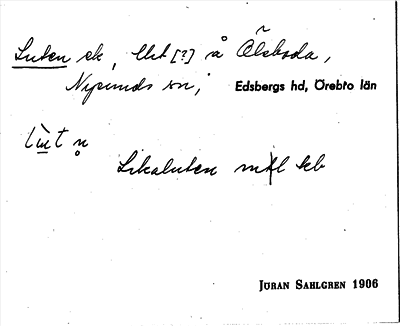 Luten sk, Ubt [?] å Ölsboda,
Nysunds sn, Edsbergs hd, Örebro län
Lùt n̥
Likaluten mtl kb
JÖRAN SAHLGREN 1906